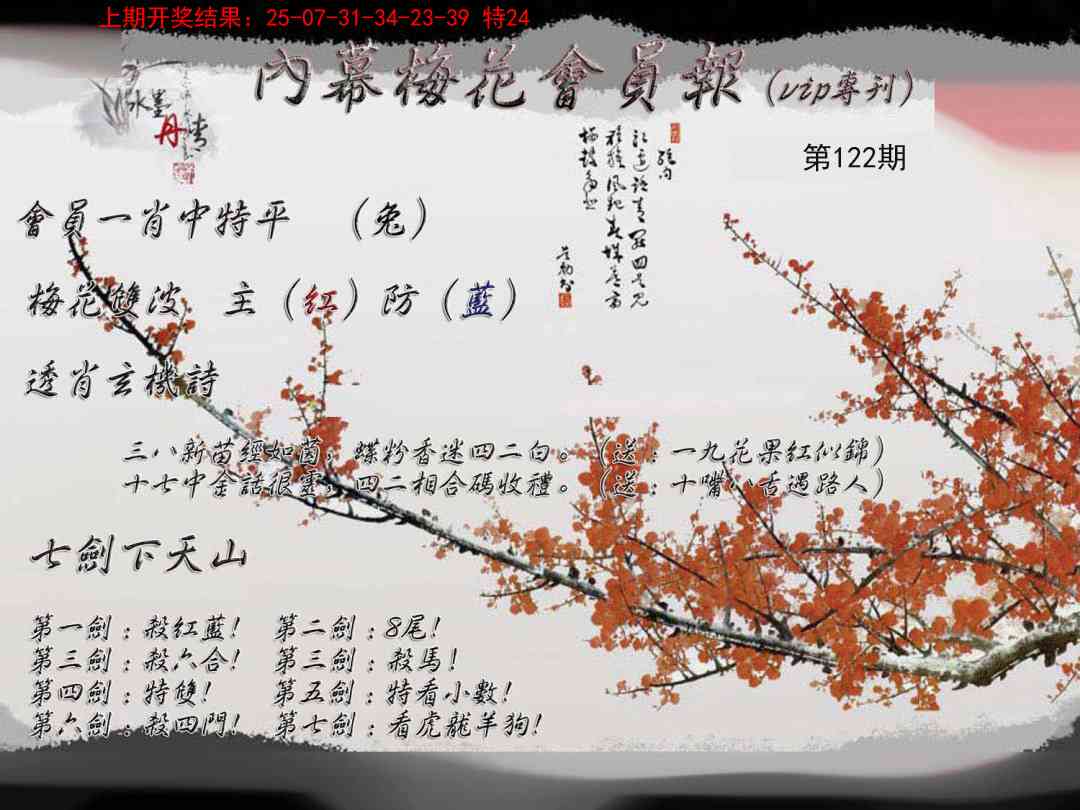 上期开奖结果：25-07-31-34-23-39 特24
內幕梅花會員報（vip專刊）
水墨
丹情
第122期
會員一肖中特平 （兔）
梅花雙波 主（紅）防（藍）
透肖玄機詩
三八新苗經如茵，蝶粉香迷四二白。（送：一九花果紅似錦）
十七中金話很靈，四二相合碼收禮。（送：十嘴八舌遇路人）
七劍下天山
第一劍：殺紅藍！ 第二劍：8尾！
第三劍：殺六合！ 第三劍：殺馬！
第四劍：特雙！ 第五劍：特看小數！
第六劍：殺四門！ 第七劍：看虎龍羊狗！